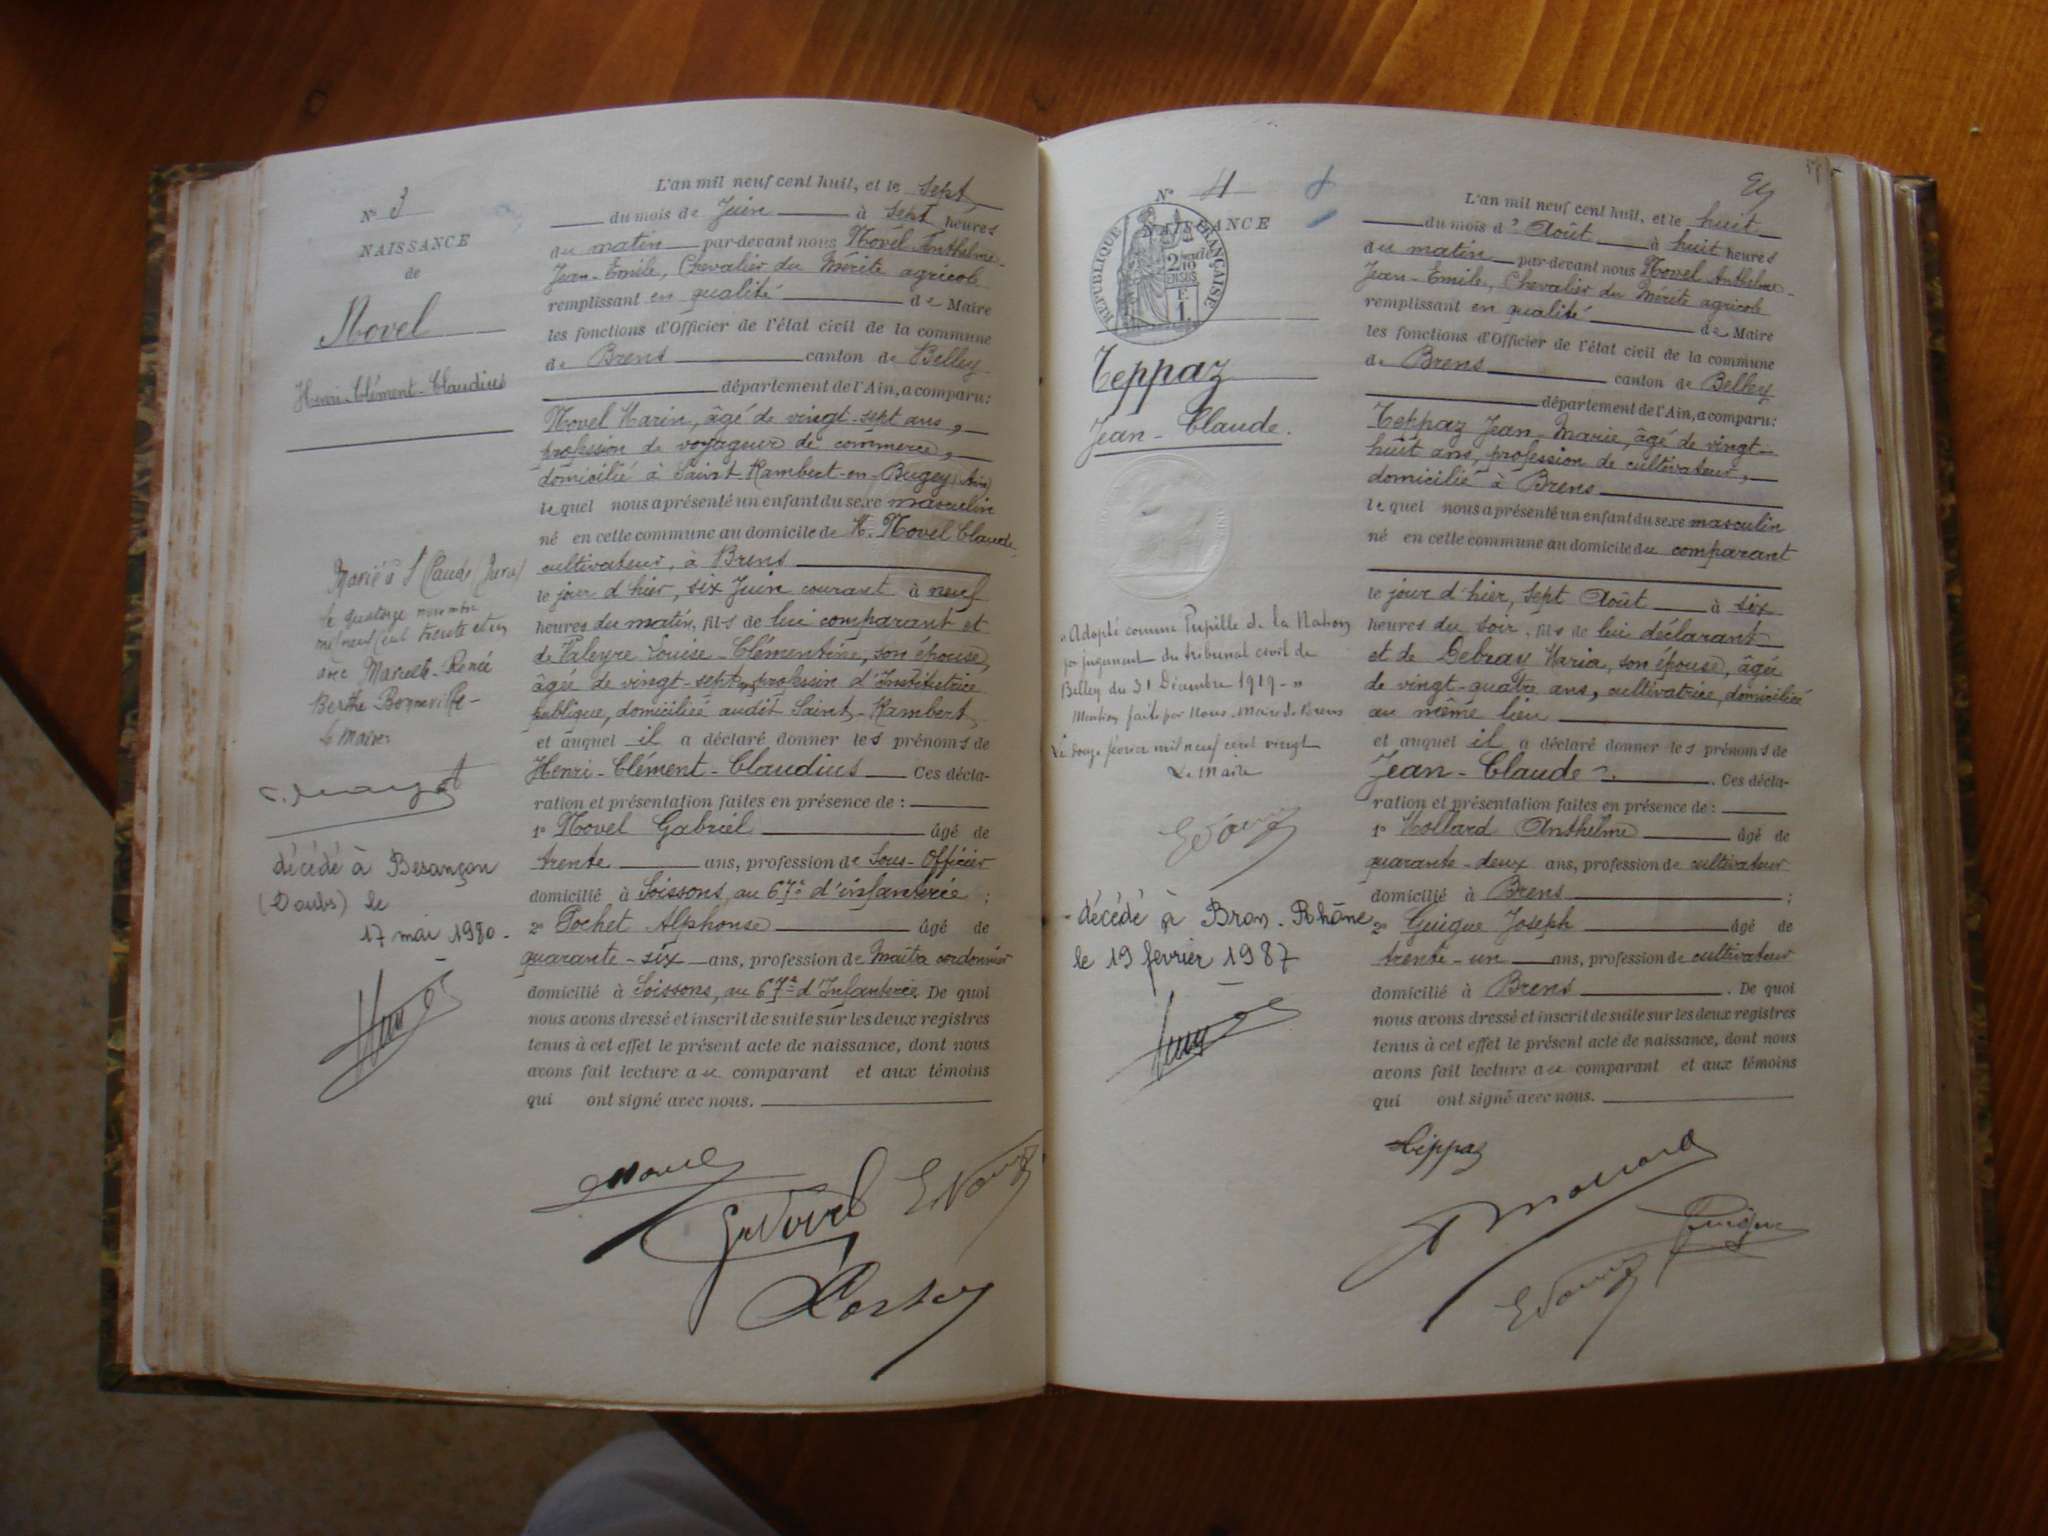 N° 3
NAISSANCE
de
Novel
Henri-Clément-Claudius
Marié à St Claude (Jura)
le quatorze novembre
mil neuf cent trente et un
avec Marcelle-Renée
Berthe Bonneville-
Le Maire
décédé à Besançon
(Doubs) le
17 mai 1980-
L'an mil neuf cent huit, et le sept
du mois de Juin à sept heures
du matin par-devant nous Novel Anthelme-
Jean-Emile, Chevalier du Mérite agricole
remplissant en qualité de Maire
les fonctions d'Officier de l'état civil de la commune
de Brens canton de Belley
département de l'Ain, a comparu:
Novel Marin, âgé de vingt-sept ans,
profession de voyageur de commerce,
domicilié à Saint-Rambert-en-Bugey (Ain)
lequel nous a présenté un enfant du sexe masculin
né en cette commune au domicile de M. Novel Claude
cultivateur, à Brens
le jour d'hier, six Juin courant à neuf
heures du matin, fils de lui comparant et
de Valeyre Louise-Clémentine, son épouse,
âgée de vingt-sept ans profession d'Institutrice
publique, domiciliée audit Saint-Rambert
et auquel il a déclaré donner les prénoms de
Henri-Clément-Claudius Ces décla-
ration et présentation faites en présence de :
1° Novel Gabriel âgé de
trente ans, profession de Sous-Officier
domicilié à Soissons, au 67e d'infanterie ;
2° Pochet Alphonse âgé de
quarante-six ans, profession de Maître cordonnier
domicilié à Soissons, au 67e d'Infanterie. De quoi
nous avons dressé et inscrit de suite sur les deux registres
tenus à cet effet le présent acte de naissance, dont nous
avons fait lecture au comparant et aux témoins
qui ont signé avec nous.
G. Novel
N° 4
NAISSANCE
RÉPUBLIQUE FRANÇAISE
2/10
EN SUS
Teppaz
Jean-Claude.
"Adopté comme Pupille de la Nation
par jugement du tribunal civil de
Belley du 31 Décembre 1919-"
Mention faite par Nous, Maire de Brens
Le douze février mil neuf cent vingt
Le Maire
- décédé à Bron-Rhône
le 19 février 1987
L'an mil neuf cent huit, et le huit
du mois d'Août à huit heures
du matin par-devant nous Novel Anthelme-
Jean-Emile, Chevalier du Mérite agricole
remplissant en qualité de Maire
les fonctions d'Officier de l'état civil de la commune
de Brens canton de Belley
département de l'Ain, a comparu:
Teppaz Jean-Marie, âgé de vingt-
huit ans, profession de cultivateur,
domicilié à Brens
lequel nous a présenté un enfant du sexe masculin
né en cette commune au domicile du comparant
le jour d'hier, sept Août à six
heures du soir, fils de lui déclarant
et de Debray Maria, son épouse, âgée
de vingt-quatre ans, cultivatrice, domiciliée
au même lieu
et auquel il a déclaré donner les prénoms de
Jean-Claude. Ces décla-
ration et présentation faites en présence de :
1° Mollard Anthelme âgé de
quarante-deux ans, profession de cultivateur
domicilié à Brens ;
2° Guigue Joseph âgé de
trente-un ans, profession de cultivateur
domicilié à Brens. De quoi
nous avons dressé et inscrit de suite sur les deux registres
tenus à cet effet le présent acte de naissance, dont nous
avons fait lecture au comparant et aux témoins
qui ont signé avec nous.
Teppaz
Mollard
Guigue